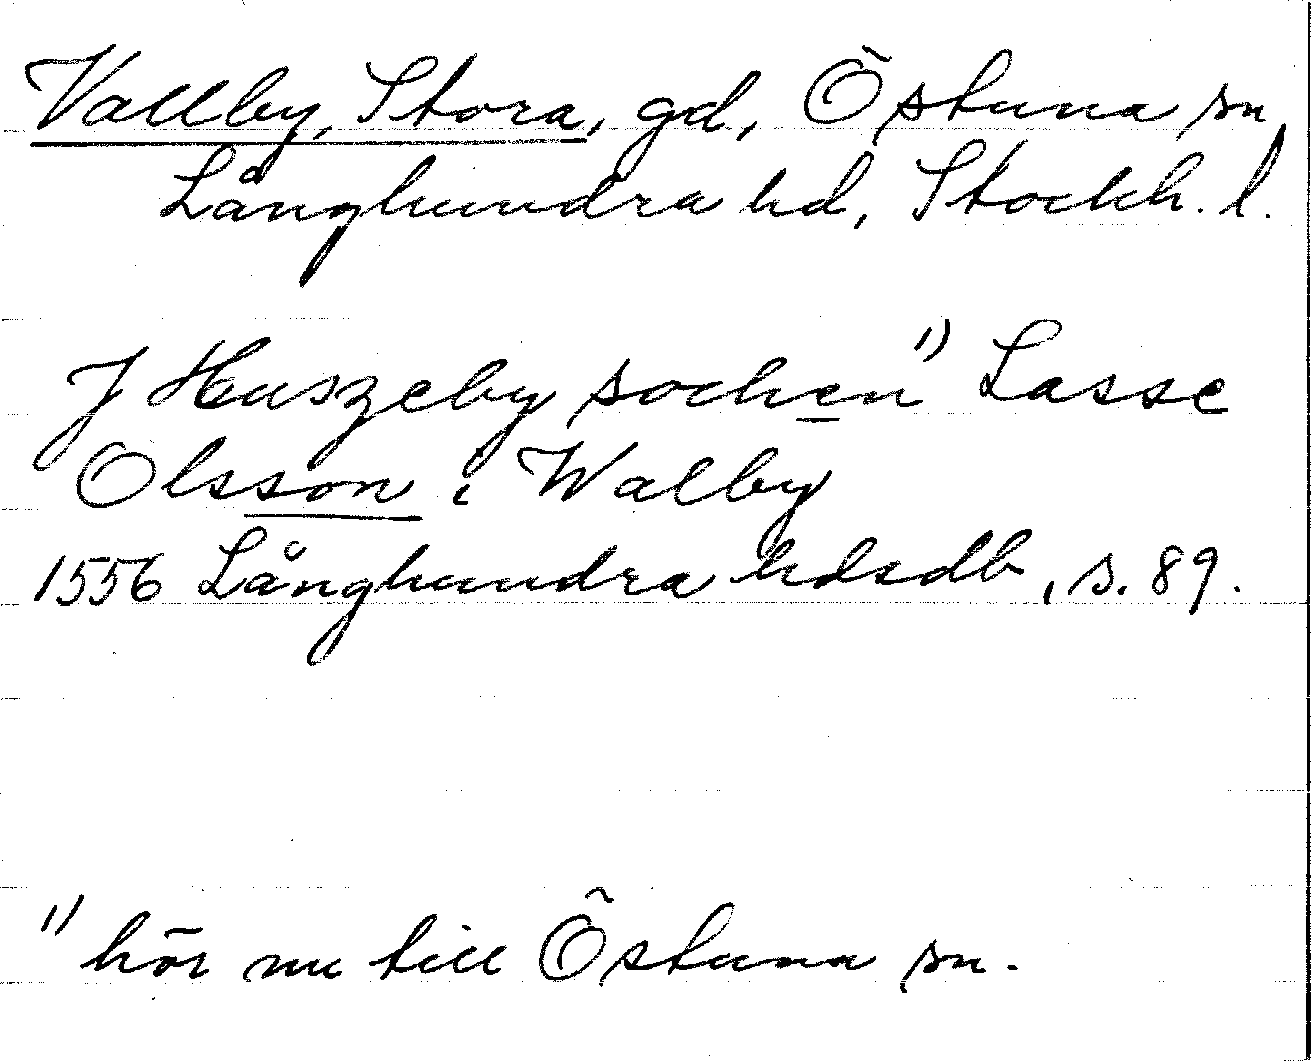 Vallby, Stora, gd, Östuna sn,
Långhundra hd, Stockh. l.
J Huszeby sochen 1) Lasse
Olsson i Walby
1556 Långhundra hdsdb, s. 89.
1) hör nu till Östuna sn.